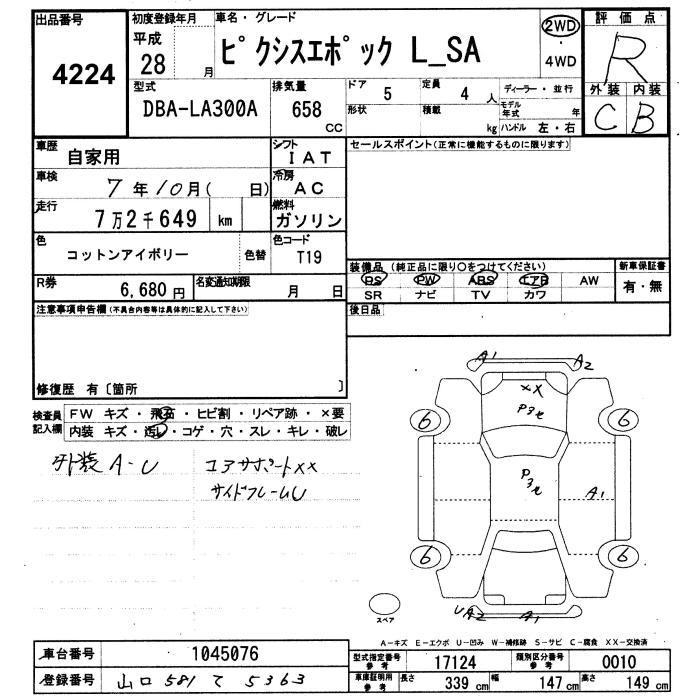 出品番号
4224
初度登録年月
平成
28 月
車名・グレード
ピクシスエポック L_SA
2WD
・
4WD
評価点
R
外装 内装
C B
型式
DBA-LA300A
排気量
658
CC
ドア 5
定員 4 人
形状
積載 kg
ディーラー・並行
モデル年式 年
ハンドル 左・右
車歴 自家用
シフト IAT
セールスポイント(正常に機能するものに限ります)
車検 7年10月( 日)
冷房 AC
走行 7万2千649 km
燃料 ガソリン
色 コットンアイボリー
色替
色コード T19
装備品 (純正品に限り○をつけてください)
PS PW ABS エアB AW
SR ナビ TV カワ
新車保証書
有・無
R券 6,680円
名変通知期限 月 日
後日品
注意事項申告欄(不具合内容等は具体的に記入して下さい)
修復歴 有〔箇所 〕
検査員記入欄
FW キズ・飛石・ヒビ割・リペア跡・×要
内装 キズ・汚レ・コゲ・穴・スレ・キレ・破レ
外装A-U
コアサポートXX
サイドフレームU
A1
A2
XX
P3セ
6
6
P3セ
A1
6
6
UA2
A1
スペア
A-キズ E-エクボ U-凹み W-補修跡 S-サビ C-腐食 XX-交換済
車台番号 1045076
登録番号 山口 581 て 5363
型式指定番号 参考 17124
類別区分番号 参考 0010
車庫証明用 参考
長さ 339 cm
幅 147 cm
高さ 149 cm